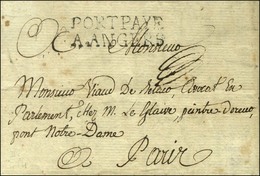 PORT PAYE
A ANGERS
Monsieur
Monsieur Viaud de avocat En
Parlement, chez M. Le Glaive, peintre doreur,
pont Notre-Dame
Paris